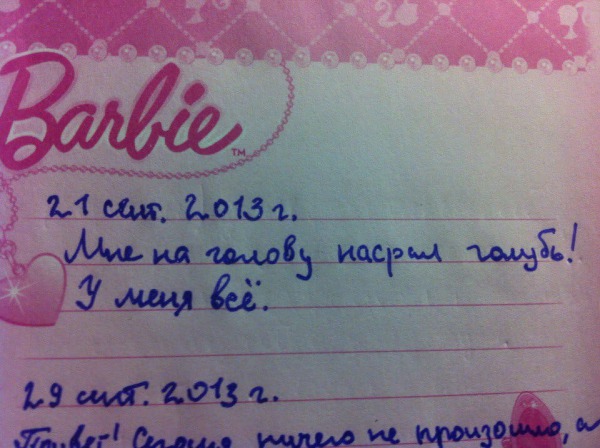 Barbie™
21 сент. 2013 г.
Мне на голову насрал голубь!
У меня всё.
29 сент. 2013 г.
Привет! Сегодня ничего не произошло, а